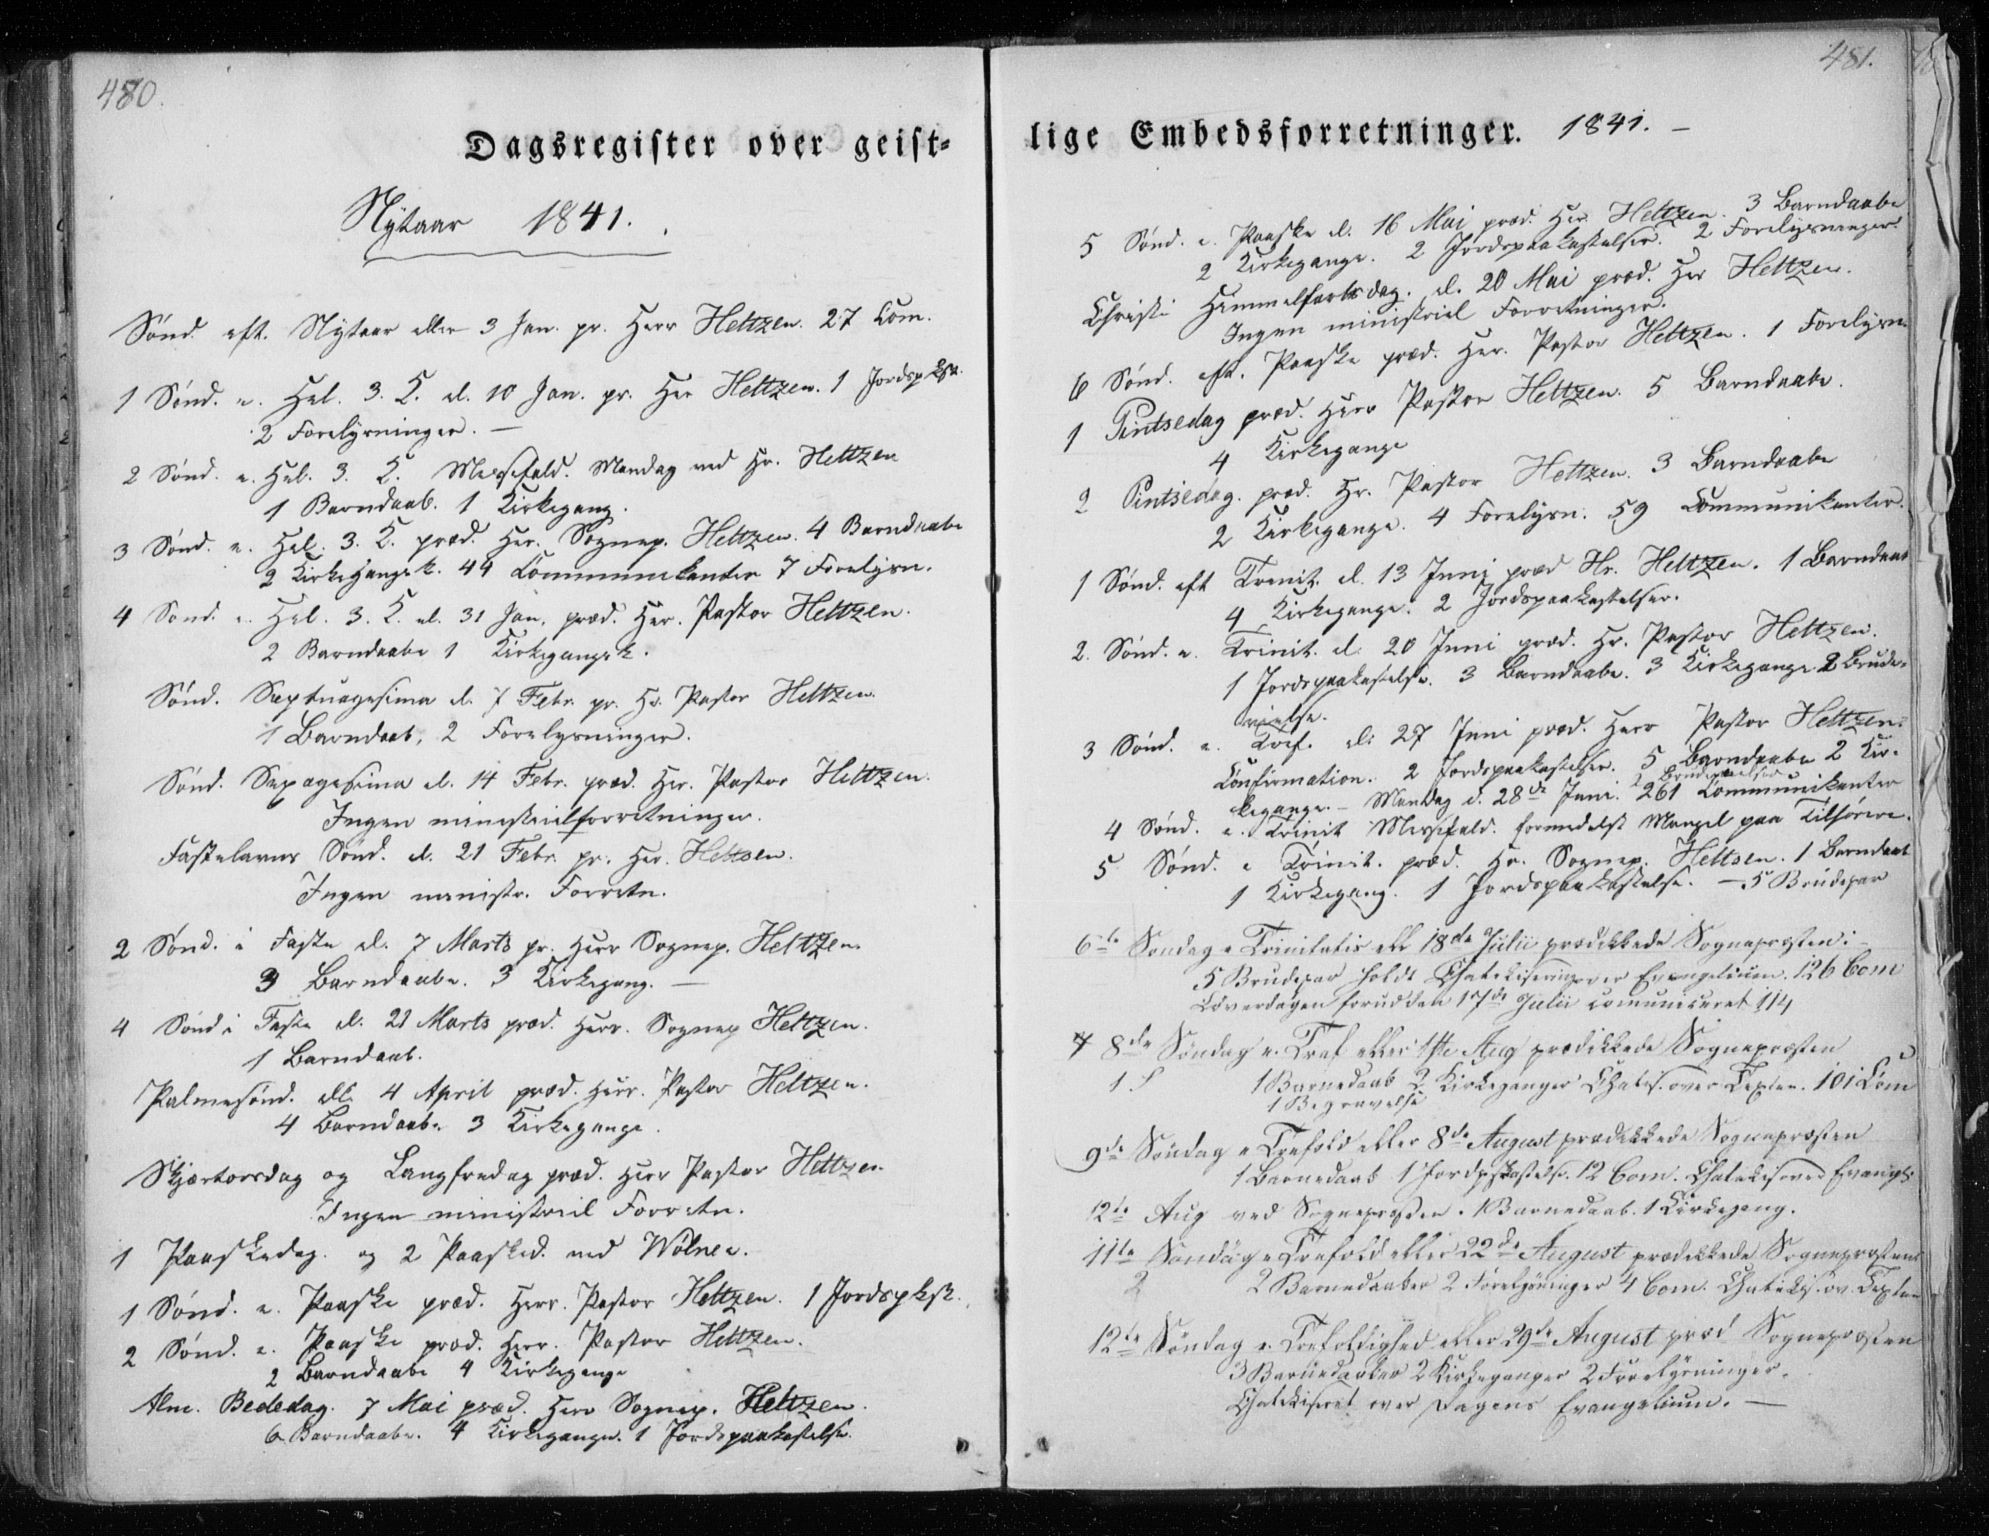 480.
Dagsregister over geist-
Nytaar 1841.
Sønd. eft. Nytaar eller 3 Jan. pr. Herr Heltzen. 27 Com.
1 Sønd. e. Hel. 3. K. d. 10 Jan. pr. Her Heltzen. 1 Jordspkst.
2 Forelysninger. —
2 Sønd. e. Hel. 3. K. Messefald. Mandag ved Hr. Heltzen
1 Barndaab. 1 Kirkegang.
3 Sønd. e. Hel. 3. K. præd. Her. Sognep. Heltzen. 4 Barndaabe
2 Kirkegangsk. 44 Communikanter 7 Forelysn.
4 Sønd. e. Hel. 3. K. d. 31 Jan. præd. Her. Pastor Heltzen.
2 Barndaabe 1 Kirkegangsk.
Sønd. Septuagesima d. 7 Febr. pr. Hr. Pastor Heltzen.
1 Barndaab, 2 Forelysninger.
Sønd. Sexagesima d. 14 Febr. præd. Her. Pastor Heltzen.
Ingen ministerielforretninger.
Fastelavns Sønd. d. 21 Febr. pr. Her. Heltsen.
Ingen ministr. Forretn.
2 Sønd. i Faste d. 7 Marts pr. Herr Sognep. Heltzen.
3 Barndaabe. 3 Kirkegang. —
4 Sønd i Faste d. 21 Marts præd. Herr. Sognep Heltzen.
1 Barndaab.
Palmesønd. ell. 4 April præd. Herr. Pastor Heltzen.
4 Barndaabe 3 Kirkegange.
Skjærtorsdag og Langfredag præd. Herr Pastor Heltzen.
Ingen ministeriel Forretn.
1 Paaskedag. og 2 Paasked. ved Wølner.
1 Sønd. e. Paaske præd. Herr. Pastor Heltzen. 1 Jordspkst.
2 Sønd. e. Paaske præd. Herr. Pastor Heltzen.
2 Barndaabe 4 Kirkegange
Alm. Bededag. 7 Mai præd. Herr Sognep. Heltzen.
6 Barndaabe. 4 Kirkegange. 1 Jordspaakastelse.
481.
lige Embedsforretninger. 1841. —
5 Sønd. e. Paaske d. 16 Mai præd. Her Heltzen. 3 Barndaabe
2 Kirkegange. 2 Jordspaakastelser. 2 Forelysninger.
Christi Himmelfartsdag. d. 20 Mai præd. Her Heltzen.
Ingen ministriel Forretninger.
6 Sønd. eft. Paaske præd. Her. Pastor Heltzen. 1 Forelysn.
1 Pintsedag præd. Herr Pastor Heltzen. 5 Barndaabe.
4 Kirkegange
2 Pintsedag. præd. Hr. Pastor Heltzen. 3 Barndaabe
2 Kirkegange. 4 Forelysn. 59 Communikanter.
1 Sønd. eft Trinit. d. 13 Juni præd Hr. Heltzen. 1 Barndaab
4 Kirkegange. 2 Jordspaakastelser.
2. Sønd. e. Trinit. d. 20 Juni præd. Hr. Pastor Heltzen.
1 Jordspaakastelse. 3 Barndaabe. 3 Kirkegange 2 Brude-
vielse.
3 Sønd. e. Tref. d. 27 Juni præd. Herr Pastor Heltzen.
Confirmation. 2 Jordspaakastelser. 5 Barndaabe 2 Kir-
2 Brudevielser
kegange. — Mandag d. 28de Juni. 261 Communikanter
4 Sønd. e. Trinit Messefald. formedelst Mangel paa Tilhørere.
5 Sønd. e Trinit. præd. Hr. Sognep. Heltsen. 1 Barndaab
1 Kirkegang. 1 Jordspaakastelse. — 5 Brudepar
6te Søndag e Trinitatis ell 18de Julii prædikkede Sognepræsten:
5 Brudepar holdt Chatekisering over Evangelium. 126 Com
Løverdagen forud den 17de Julii comuniceret 114
8de Søndag e. Tref eller 1ste Aug prædikkede Sognepræsten
1 Barnedaab 2 Kirkeganger Chatis. over Texten. 101 Com
1 Begravelse
9de Søndag e Trefold eller 8de August prædikkede Sognepræsten
1 Barnedaab 1 Jordpkastelse. 12 Com. Chatekis over Evangl.
12te Aug ved Sognepræsten. 1 Barnedaab. 1 Kirkegang.
11te Søndag e Trefold eller 22de August prædikkede Sognepræsten
2 2 Barnedaaber 2 Forelysninger 4 Com. Chatekis. ov. Texten
12te Søndag e. Trefoldighed eller 29de August præd Sognepræsten
3 Barnedaaber 2 Kirkeganger 2 Forelysninger.
Chatekiseret over Dagens Evangelium. —